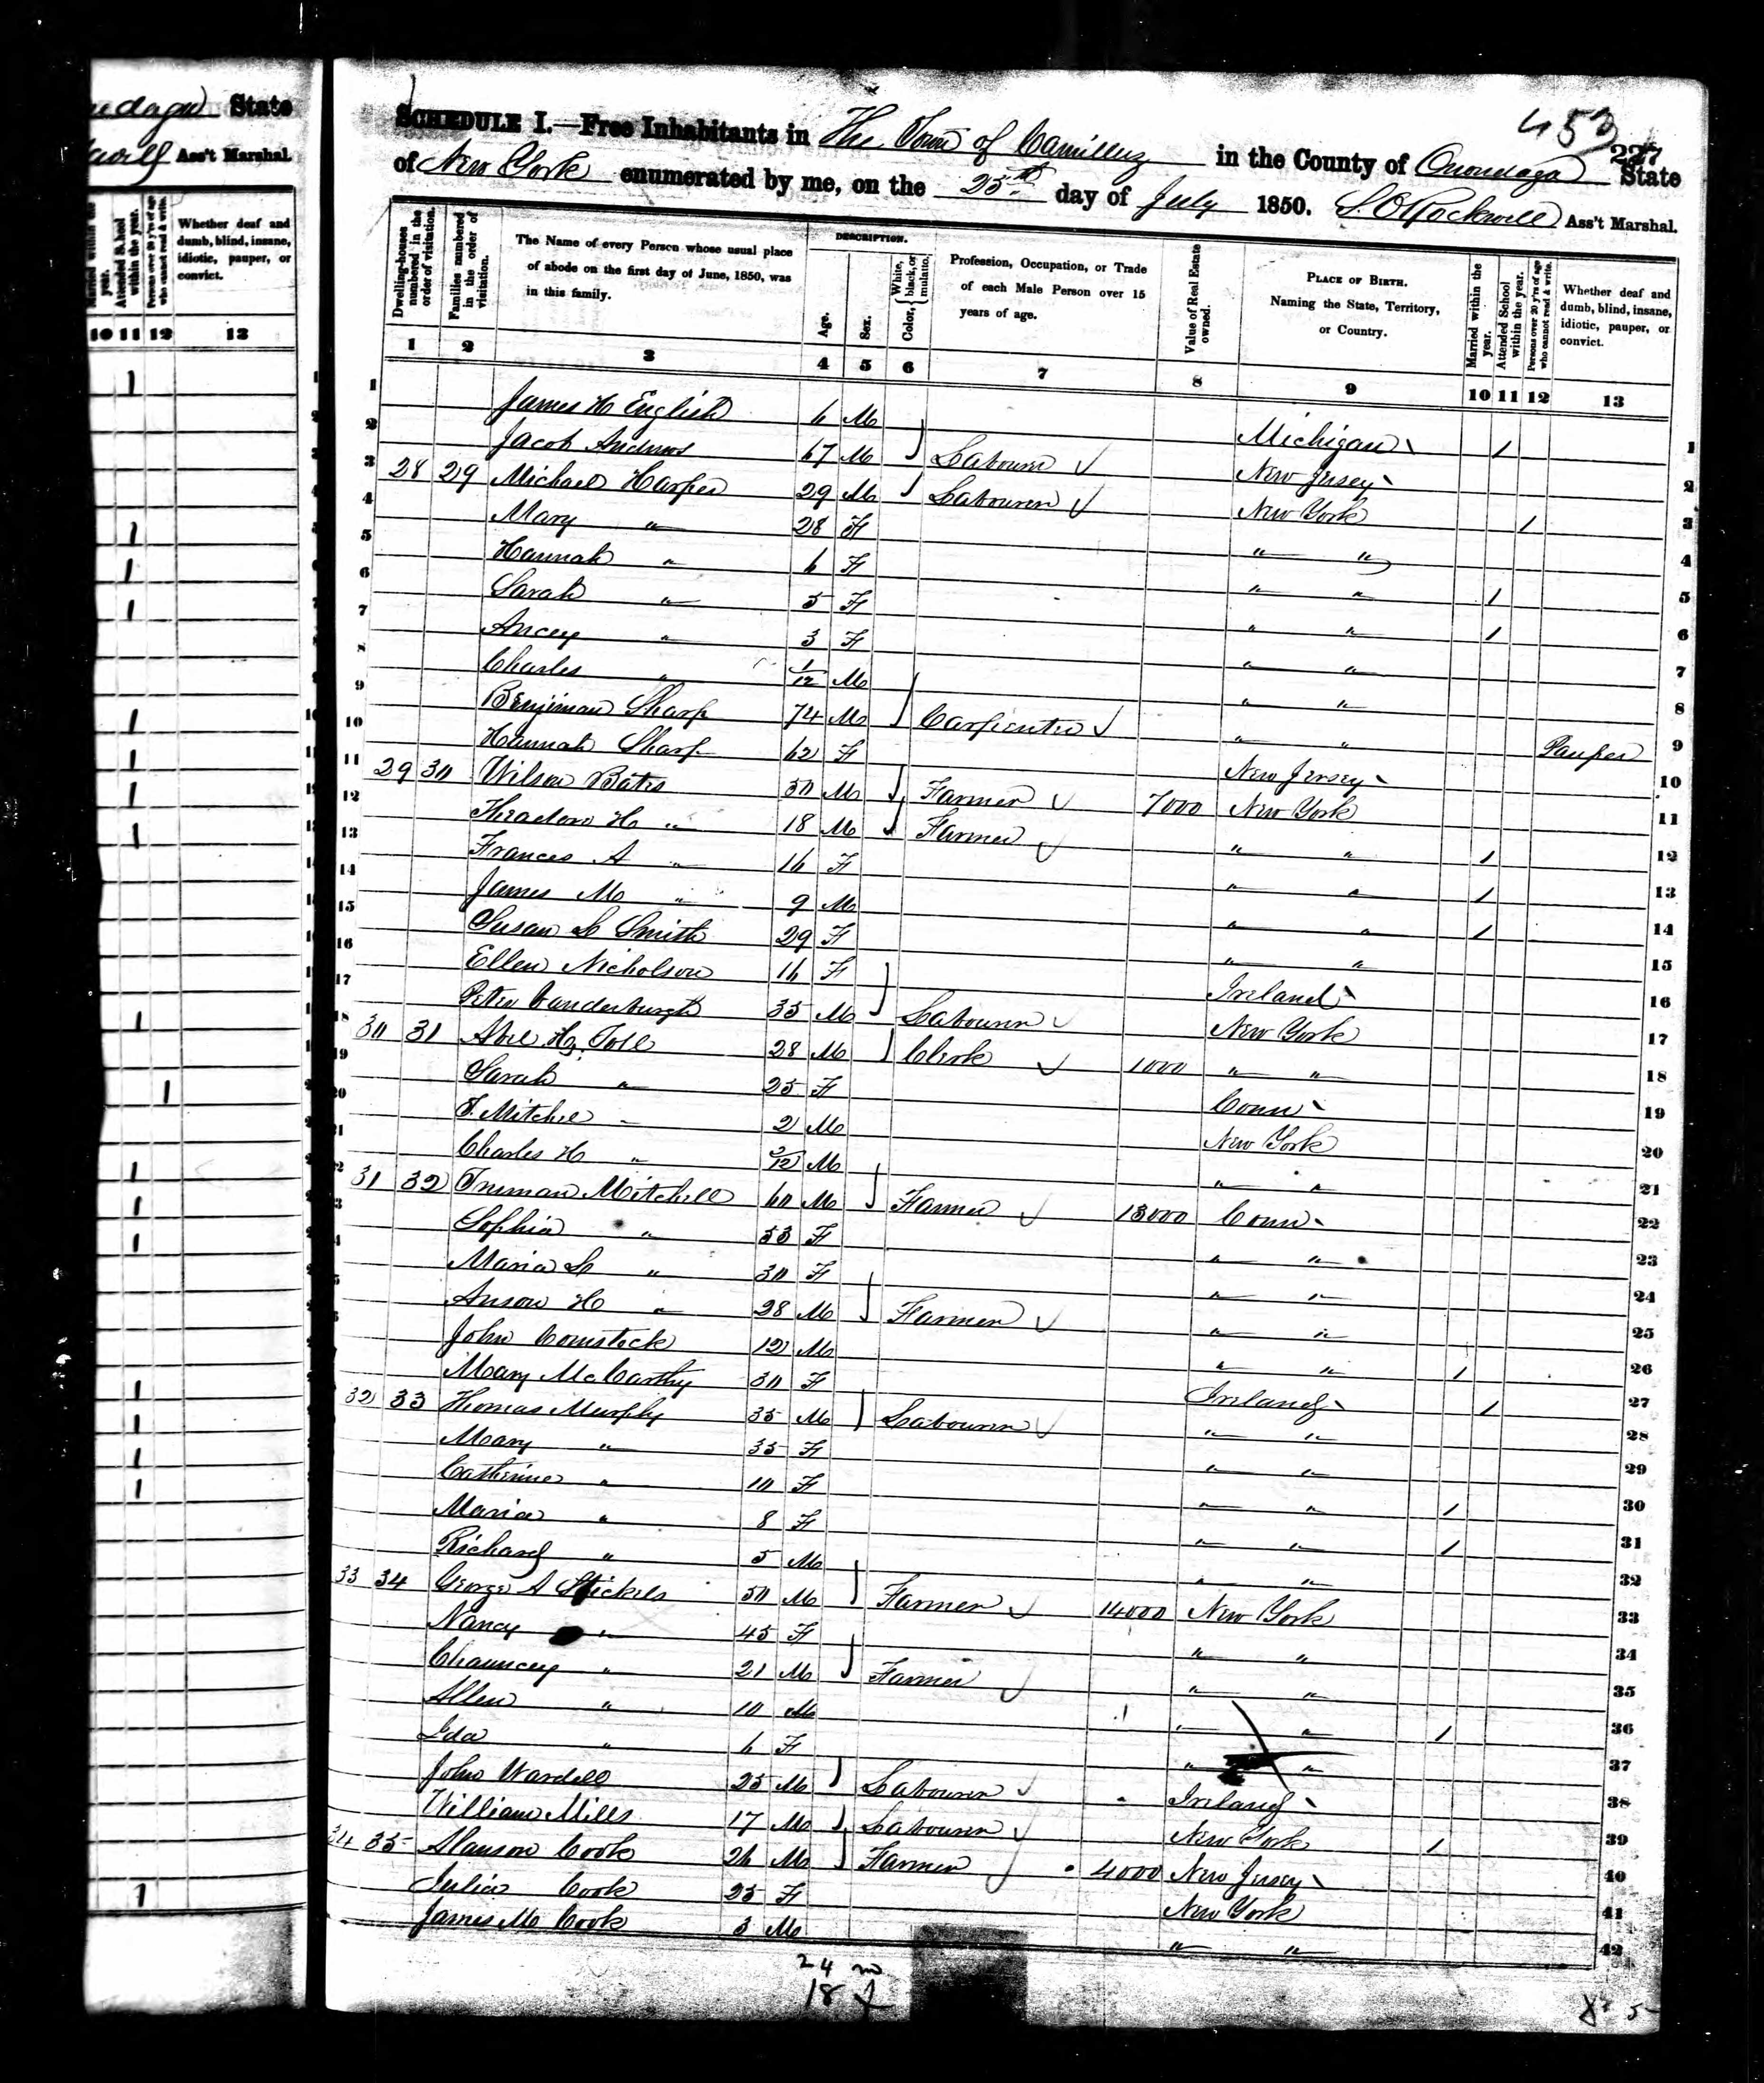 State
Ass't Marshal.
Married within the year.
Attended School within the year.
Persons over 20 y'rs of age who cannot read & write.
Whether deaf and dumb, blind, insane, idiotic, pauper, or convict.
10 11 12 13
453
227
SCHEDULE I.—Free Inhabitants in The Town of Camillus in the County of Onondaga State
of New York enumerated by me, on the 25th day of July 1850. S. O. Rockwell Ass't Marshal.
Dwelling-houses numbered in the order of visitation.
Families numbered in the order of visitation.
The Name of every Person whose usual place of abode on the first day of June, 1850, was in this family.
DESCRIPTION.
Age.
Sex.
Color, { White, black, or mulatto.
Profession, Occupation, or Trade of each Male Person over 15 years of age.
Value of Real Estate owned.
PLACE OF BIRTH. Naming the State, Territory, or Country.
Married within the year.
Attended School within the year.
Persons over 20 y'rs of age who cannot read & write.
Whether deaf and dumb, blind, insane, idiotic, pauper, or convict.
1 2 3 4 5 6 7 8 9 10 11 12 13
1 James H English 6 M Michigan 1 1
2 Jacob Andrews 67 M Labourer New Jersey 2
3 28 29 Michael Harper 29 M Labourer New York 1 3
4 Mary " 28 F " " 4
5 Hannah " 6 F " " 1 5
6 Sarah " 5 F " " 1 6
7 Ancey " 3 F " " 7
8 Charles " 1/12 M " " 8
9 Benjiman Sharp 74 M Carpenter " " Pauper 9
10 Hannah Sharp 62 F New Jersey 10
11 29 30 Wilson Bates 50 M Farmer 7000 New York 11
12 Theadore H " 18 M Farmer " " 1 12
13 Frances A " 16 F " " 1 13
14 James M " 9 M " " 1 14
15 Susan L Smith 29 F " " 15
16 Ellen Nicholson 16 F Ireland 16
17 Peter Vanderburgh 35 M Labourer New York 17
18 30 31 Abel H. Toll 28 M Clerk 1000 " " 18
19 Sarah " 25 F Conn 19
20 T. Mitchel " 2 M New York 20
21 Charles H " 3/12 M " " 21
31 32 Truman Mitchell 60 M Farmer 13000 Conn 22
Sophia " 53 F " " 23
Maria L " 30 F " " 24
Anson H " 28 M Farmer " " 25
John Comstock 12 M " " 1 26
Mary McCarthy 30 F Ireland 1 27
32 33 Thomas Murphy 35 M Labourer " " 28
Mary " 35 F " " 29
Catherine " 10 F " " 1 30
Maria " 8 F " " 1 31
Richard " 5 M " " 32
33 34 George A Stickels 50 M Farmer 14000 New York 33
Nancy " 45 F " " 34
Chauncey " 21 M Farmer " " 35
Allen " 10 M " " 1 36
Ida " 6 F " " 37
John Wardell 25 M Labourer Ireland 38
William Mills 17 M Labourer New York 1 39
34 35 Alanson Cook 26 M Farmer 4000 New Jersey 40
Julia Cook 25 F New York 41
James M Cook 3 M " " 42
24 m
18 f